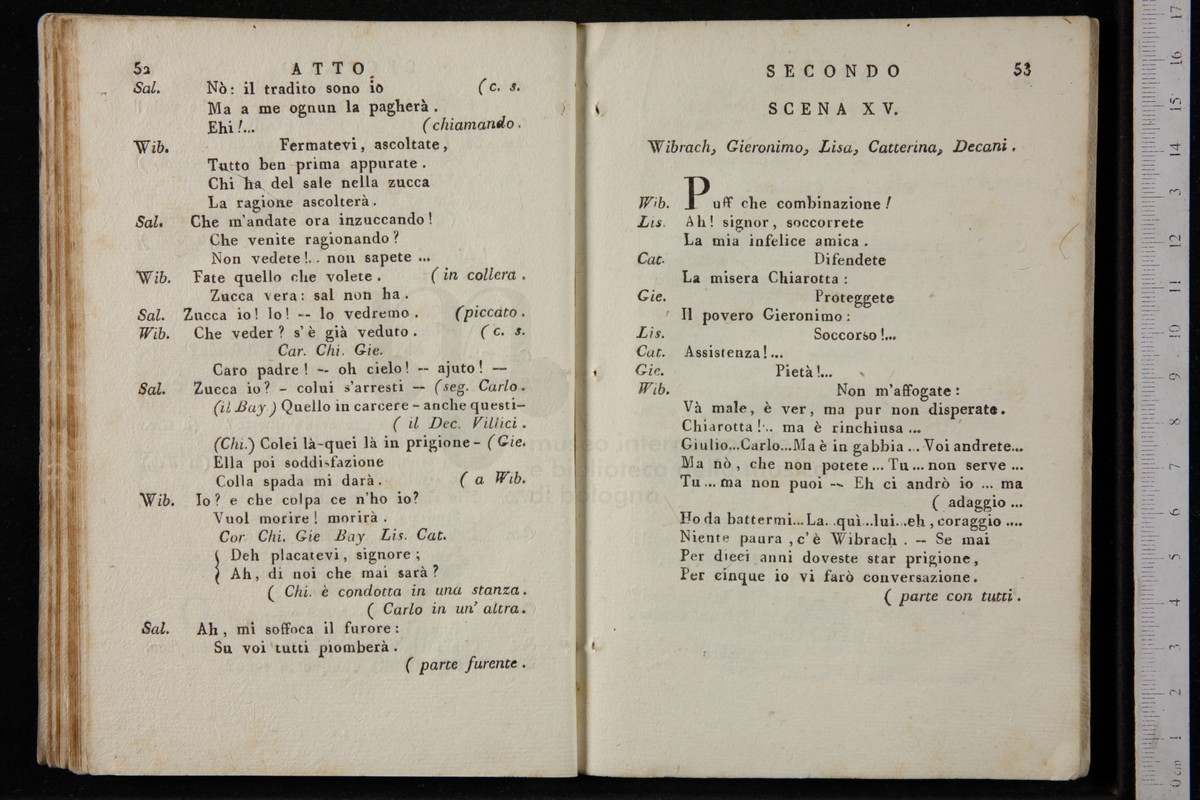 52 ATTO
Sal. Nò: il tradito sono io (c. s.
Ma a me ognun la pagherà.
Ehi!... (chiamando.
Wib. Fermatevi, ascoltate,
Tutto ben prima appurate.
Chi ha del sale nella zucca
La ragione ascolterà.
Sal. Che m'andate ora inzuccando!
Che venite ragionando?
Non vedete!.. non sapete ...
Wib. Fate quello che volete. (in collera.
Zucca vera: sal non ha.
Sal. Zucca io! Io! -- lo vedremo. (piccato.
Wib. Che veder? s'è già veduto. (c. s.
Car. Chi. Gie.
Caro padre! -- oh cielo! -- ajuto! --
Sal. Zucca io? - colui s'arresti -- (seg. Carlo.
(il Bay) Quello in carcere - anche questi-
( il Dec. Villici.
(Chi.) Colei là-quei là in prigione- (Gie.
Ella poi soddisfazione
Colla spada mi darà. ( a Wib.
Wib. Io? e che colpa ce n'ho io?
Vuol morire! morirà.
Cor. Chi. Gie Bay Lis. Cat.
{ Deh placatevi, signore;
Ah, di noi che mai sarà?
( Chi. è condotta in una stanza.
( Carlo in un' altra.
Sal. Ah, mi soffoca il furore:
Su voi tutti piomberà.
( parte furente.
SECONDO 53
SCENA XV.
Wibrach, Gieronimo, Lisa, Catterina, Decani.
Wib. Puff che combinazione!
Lis. Ah! signor, soccorrete
La mia infelice amica.
Cat. Difendete
La misera Chiarotta:
Gie. Proteggete
Il povero Gieronimo:
Lis. Soccorso!...
Cat. Assistenza!...
Gie. Pietà!...
Wib. Non m'affogate:
Và male, è ver, ma pur non disperate.
Chiarotta!... ma è rinchiusa ...
Giulio...Carlo...Ma è in gabbia ... Voi andrete...
Ma nò, che non potete ... Tu ... non serve ...
Tu ... ma non puoi -- Eh ci andrò io ... ma
( adaggio ...
Ho da battermi... La..quì..lui..eh, coraggio ....
Niente paura, c'è Wibrach. -- Se mai
Per dieci anni doveste star prigione,
Per cinque io vi farò conversazione.
( parte con tutti.
museo inter
e biblioteca della musica
di bologna